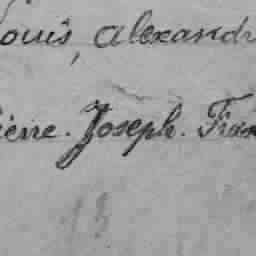 Louis, alexandr
ierre. Joseph. Fran